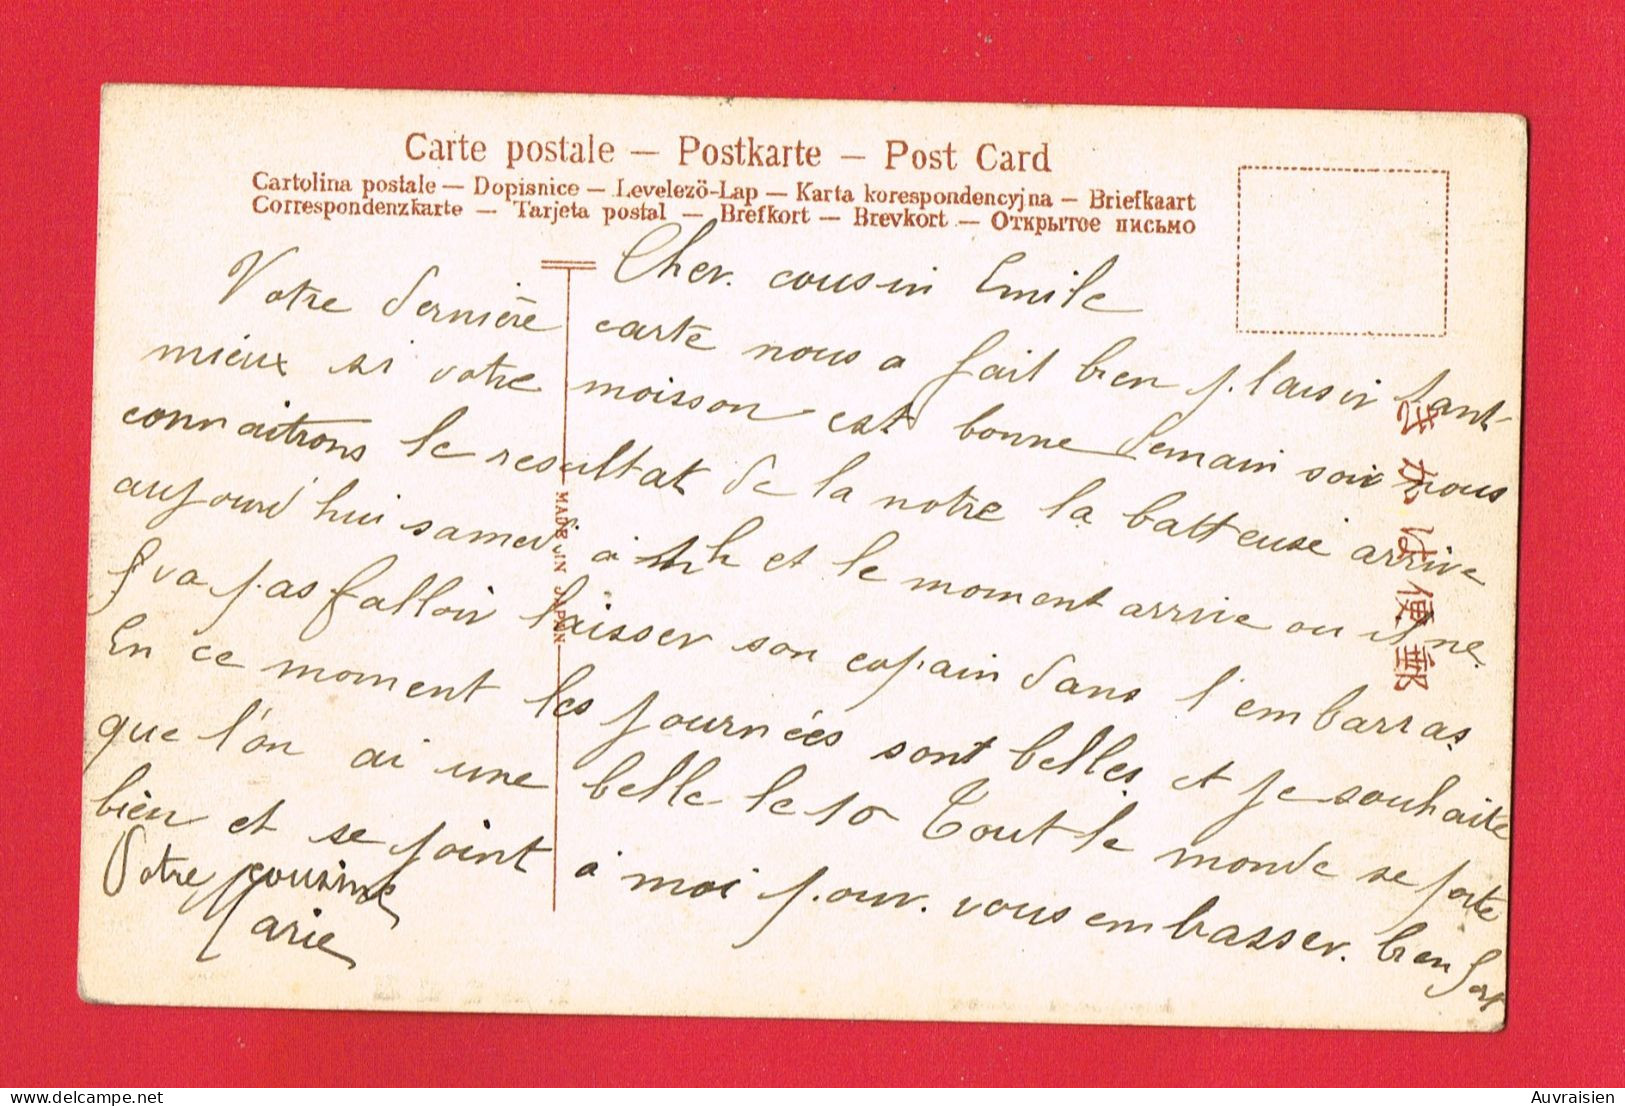 Carte postale — Postkarte — Post Card
Cartolina postale — Dopisnice — Levelezö-Lap — Karta korespondencyjna — Briefkaart
Correspondenzkarte — Tarjeta postal — Brefkort — Brevkort — Открытое письмо
Cher cousin Emile
Votre dernière carte nous a fait bien plaisir tant
mieux si votre moisson est bonne demain soir nous
connaitrons le resultat de la notre la batteuse arrive
aujourd'hui samedi à h et le moment arrive ou il ne
va pas falloir laisser son copain dans l'embarras
En ce moment les journées sont belles et je souhaite
que l'on ai une belle le 10 Tout le monde se porte
bien et se joint à moi pour vous embasser bien fort
Votre cousine
Marie
MADE IN JAPAN
きがは便郵
Auvraisien